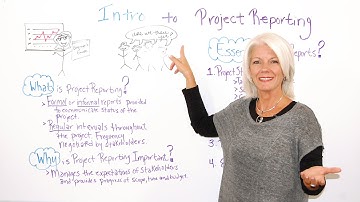 Intro to Project Reporting
What is Project Reporting?
Formal or informal reports provided
to communicate status of the
project.
Regular intervals throughout
the project. Frequency
negotiated by stakeholders.
Why is Project Reporting Important?
Manages the expectations of Stakeholders
and provides progress of scope, time and budget.
Essen
Reports?
1. Project St